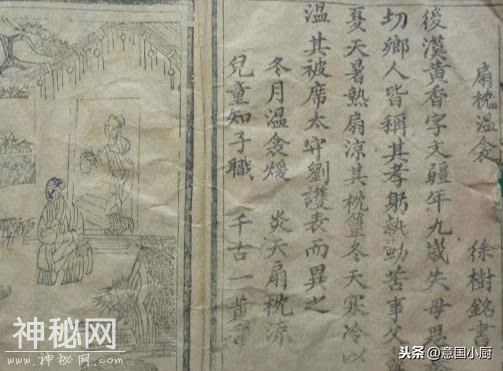 扇枕温衾 徐樹銘書
後漢黃香字文疆年九歲失母思
切鄉人皆稱其孝躬執勤苦事父
夏天暑熱扇涼其枕簟冬天寒冷以
温其被席太守劉護表而異之
冬月温衾煖 炎天扇枕涼
兒童知子職 千古一黃
神秘网
WWW.神秘网.COM
头条@意国小厨